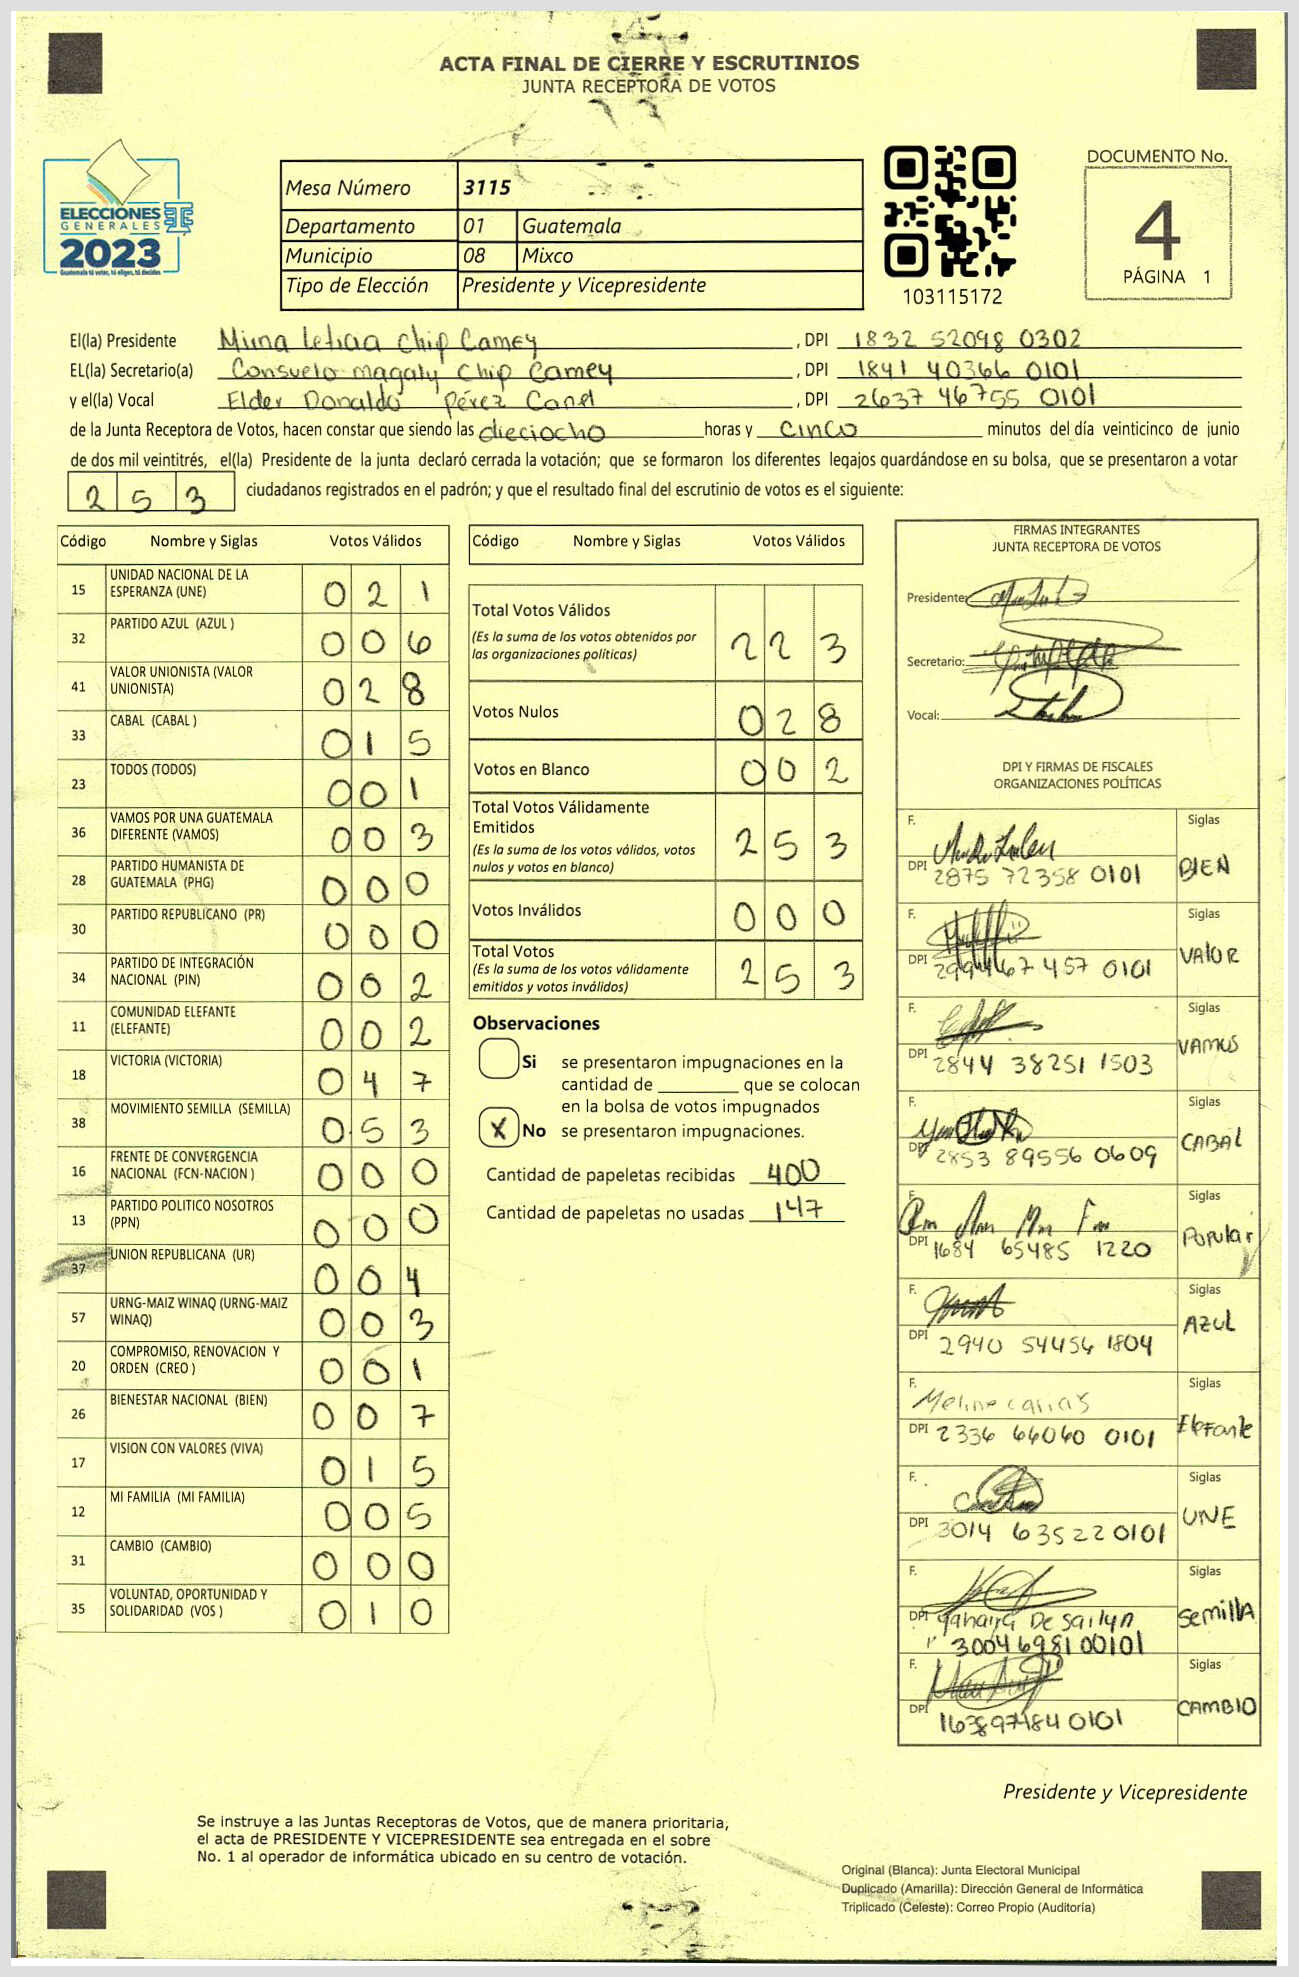 ACTA FINAL DE CIERRE Y ESCRUTINIOS
JUNTA RECEPTORA DE VOTOS
ELECCIONES
GENERALES
2023
Guatemala tú votas, tú eliges, tú decides
Mesa Número 3115
Departamento 01 Guatemala
Municipio 08 Mixco
Tipo de Elección Presidente y Vicepresidente
103115172
DOCUMENTO No.
4
PÁGINA 1
El(la) Presidente Mirna Leticia Chip Camey , DPI 1832 52098 0302
EL(la) Secretario(a) Consuelo magaly Chip Camey , DPI 1841 40366 0101
y el(la) Vocal Elder Donaldo Pérez Canel , DPI 2637 46755 0101
de la Junta Receptora de Votos, hacen constar que siendo las dieciocho horas y cinco minutos del día veinticinco de junio
de dos mil veintitrés, el(la) Presidente de la junta declaró cerrada la votación; que se formaron los diferentes legajos guardándose en su bolsa, que se presentaron a votar
253 ciudadanos registrados en el padrón; y que el resultado final del escrutinio de votos es el siguiente:
Código Nombre y Siglas Votos Válidos
15 UNIDAD NACIONAL DE LA ESPERANZA (UNE) 021
32 PARTIDO AZUL (AZUL ) 006
41 VALOR UNIONISTA (VALOR UNIONISTA) 028
33 CABAL (CABAL ) 015
23 TODOS (TODOS) 001
36 VAMOS POR UNA GUATEMALA DIFERENTE (VAMOS) 003
28 PARTIDO HUMANISTA DE GUATEMALA (PHG) 000
30 PARTIDO REPUBLICANO (PR) 000
34 PARTIDO DE INTEGRACIÓN NACIONAL (PIN) 002
11 COMUNIDAD ELEFANTE (ELEFANTE) 002
18 VICTORIA (VICTORIA) 047
38 MOVIMIENTO SEMILLA (SEMILLA) 053
16 FRENTE DE CONVERGENCIA NACIONAL (FCN-NACION ) 000
13 PARTIDO POLITICO NOSOTROS (PPN) 000
37 UNION REPUBLICANA (UR) 004
57 URNG-MAIZ WINAQ (URNG-MAIZ WINAQ) 003
20 COMPROMISO, RENOVACION Y ORDEN (CREO ) 001
26 BIENESTAR NACIONAL (BIEN) 007
17 VISION CON VALORES (VIVA) 015
12 MI FAMILIA (MI FAMILIA) 005
31 CAMBIO (CAMBIO) 000
35 VOLUNTAD, OPORTUNIDAD Y SOLIDARIDAD (VOS ) 010
Código Nombre y Siglas Votos Válidos
Total Votos Válidos 223
(Es la suma de los votos obtenidos por
las organizaciones políticas)
Votos Nulos 028
Votos en Blanco 002
Total Votos Válidamente
Emitidos 253
(Es la suma de los votos válidos, votos
nulos y votos en blanco)
Votos Inválidos 000
Total Votos 253
(Es la suma de los votos válidamente
emitidos y votos inválidos)
Observaciones
Si se presentaron impugnaciones en la
cantidad de ________ que se colocan
en la bolsa de votos impugnados
X No se presentaron impugnaciones.
Cantidad de papeletas recibidas 400
Cantidad de papeletas no usadas 147
FIRMAS INTEGRANTES
JUNTA RECEPTORA DE VOTOS
Presidente:
Secretario:
Vocal:
DPI Y FIRMAS DE FISCALES
ORGANIZACIONES POLÍTICAS
F. Siglas
DPI 2875 72358 0101 BIEN
F. Siglas
DPI 0101 VALOR
F. Siglas
DPI 2844 38251 1503 VAMOS
F. Siglas
DPI 2853 89556 0609 CABAL
F. Siglas
DPI 1684 65485 1220 Popular
F. Siglas
DPI 2940 54456 1804 AZUL
F. Siglas
DPI 2336 66060 0101 Elefante
F. Siglas
DPI 3014 63522 0101 UNE
F. Siglas
DPI 3004 69810 0101 Semilla
F. Siglas
DPI 0101 CAMBIO
Presidente y Vicepresidente
Se instruye a las Juntas Receptoras de Votos, que de manera prioritaria,
el acta de PRESIDENTE Y VICEPRESIDENTE sea entregada en el sobre
No. 1 al operador de informática ubicado en su centro de votación.
Original (Blanca): Junta Electoral Municipal
Duplicado (Amarilla): Dirección General de Informática
Triplicado (Celeste): Correo Propio (Auditoría)